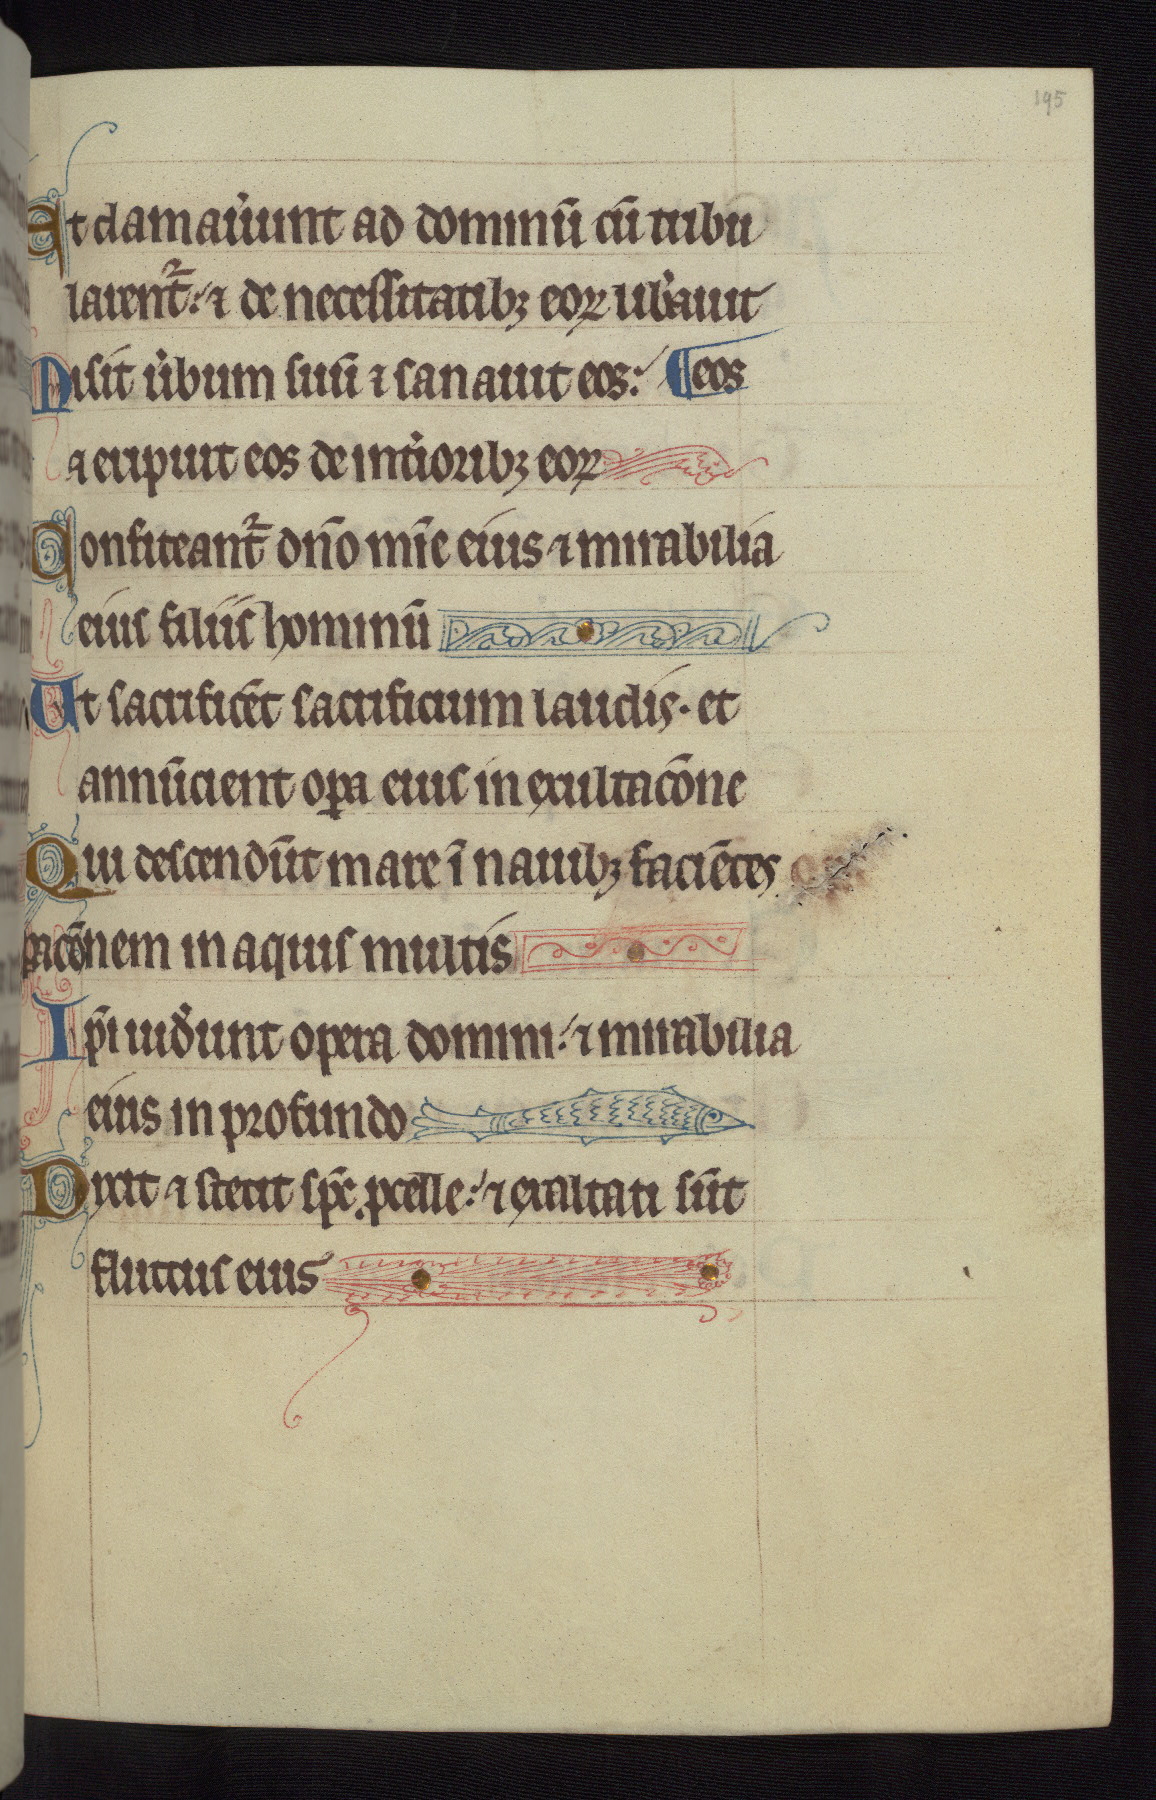 195
Et clamau̓unt ad dominū cū tribu
larent᷑: ⁊ de necessitatibꝫ eoꝝ lib̓auit
Misit u̓bum suū ⁊ sanauit eos: ¶ eos
⁊ eripuit eos de int̓ioribꝫ eoꝝ
Confiteant᷑ dn̄o mīe eius ⁊ mirabilia
eius filiis hominū
Ut sacrificēt sacrificium laudis. et
annūcient oꝑa eius in exultacōne
Qui descendūt mare ī nauibꝫ faciētes
pacōnem in aquis multis
Ip̄i uid̓unt opera domini: ⁊ mirabilia
eius in profundo
Dixit ⁊ stetit sp̄c ꝓcelle: ⁊ exaltati sūt
fluctus eius